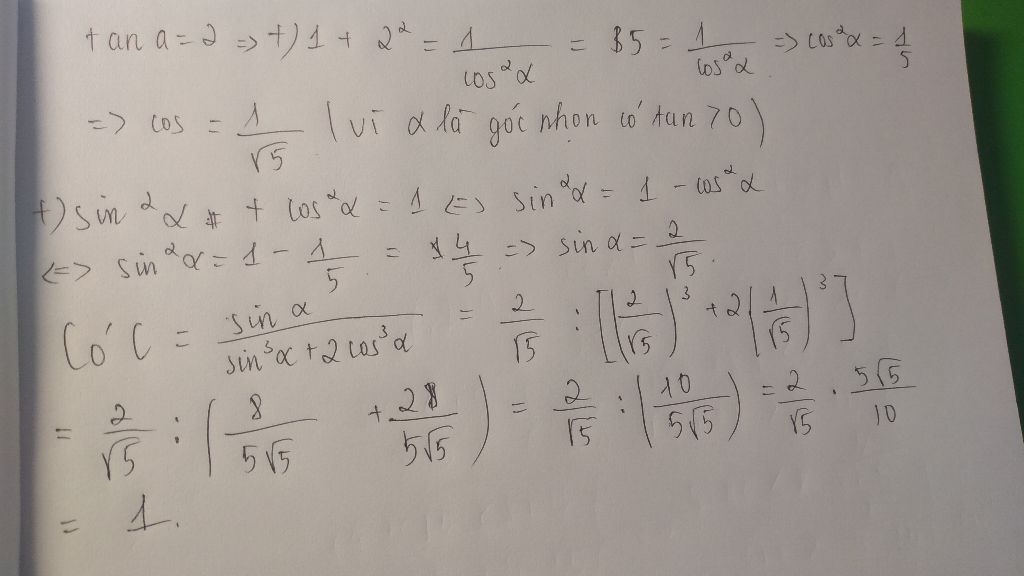 tan a = 2 => +) 1 + 2² = 1/cos²α = 5 = 1/cos²α => cos²α = 1/5
=> cos = 1/√5 (vì α là góc nhọn có tan > 0)
+) sin²α + cos²α = 1 <=> sin²α = 1 - cos²α
<=> sin²α = 1 - 1/5 = 4/5 => sin α = 2/√5.
Có C = sin α/(sin³α + 2cos³α) = 2/√5 : [(2/√5)³ + 2(1/√5)³]
= 2/√5 : (8/5√5 + 2/5√5) = 2/√5 : (10/5√5) = 2/√5 . 5√5/10
= 1.